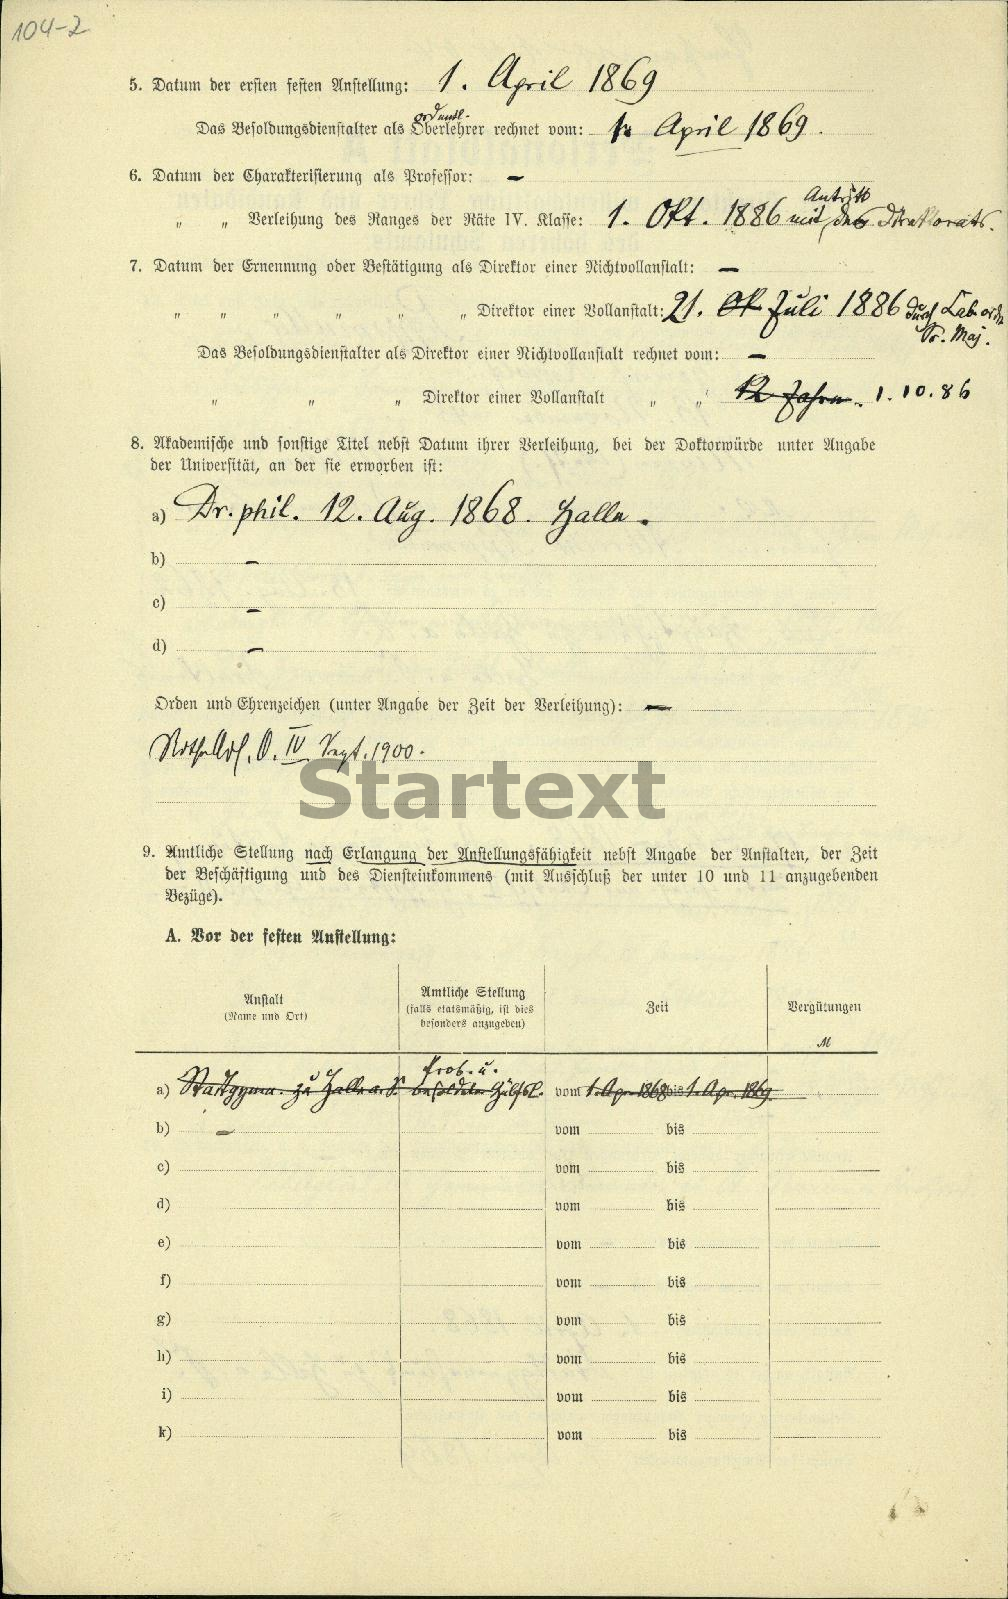 104-2
5. Datum der ersten festen Anstellung: 1. April 1869
ordentl.
Das Besoldungsdienstalter als Oberlehrer rechnet vom: 1. April 1869.
6. Datum der Charakterisierung als Professor: –
Antritt
" " Verleihung des Ranges der Räte IV. Klasse: 1. Okt. 1886 mit des Direktorats.
7. Datum der Ernennung oder Bestätigung als Direktor einer Nichtvollanstalt: –
" " " " " " Direktor einer Vollanstalt: 21. Ok Juli 1886 durch Cab. ordr.
Sr. Maj.
Das Besoldungsdienstalter als Direktor einer Nichtvollanstalt rechnet vom: –
" " " Direktor einer Vollanstalt " " 12 Jahren. 1.10.86
8. Akademische und sonstige Titel nebst Datum ihrer Verleihung, bei der Doktorwürde unter Angabe
der Universität, an der sie erworben ist:
a) Dr. phil. 12. Aug. 1868. Halle.
b) –
c) –
d) –
Orden und Ehrenzeichen (unter Angabe der Zeit der Verleihung): –
Rother Adl. O. IV Sept. 1900.
Startext
9. Amtliche Stellung nach Erlangung der Anstellungsfähigkeit nebst Angabe der Anstalten, der Zeit
der Beschäftigung und des Diensteinkommens (mit Ausschluß der unter 10 und 11 anzugebenden
Bezüge).
A. Vor der festen Anstellung:
Anstalt
(Name und Ort)
Amtliche Stellung
(falls etatsmäßig, ist dies
besonders anzugeben)
Zeit
Vergütungen
M
Prob. u.
a) Stadtgymn. zu Halle a. S. besoldeter Hülfsl. vom 1. Apr. 1868 bis 1. Apr. 1869
b) – vom bis
c) vom bis
d) vom bis
e) vom bis
f) vom bis
g) vom bis
h) vom bis
i) vom bis
k) vom bis